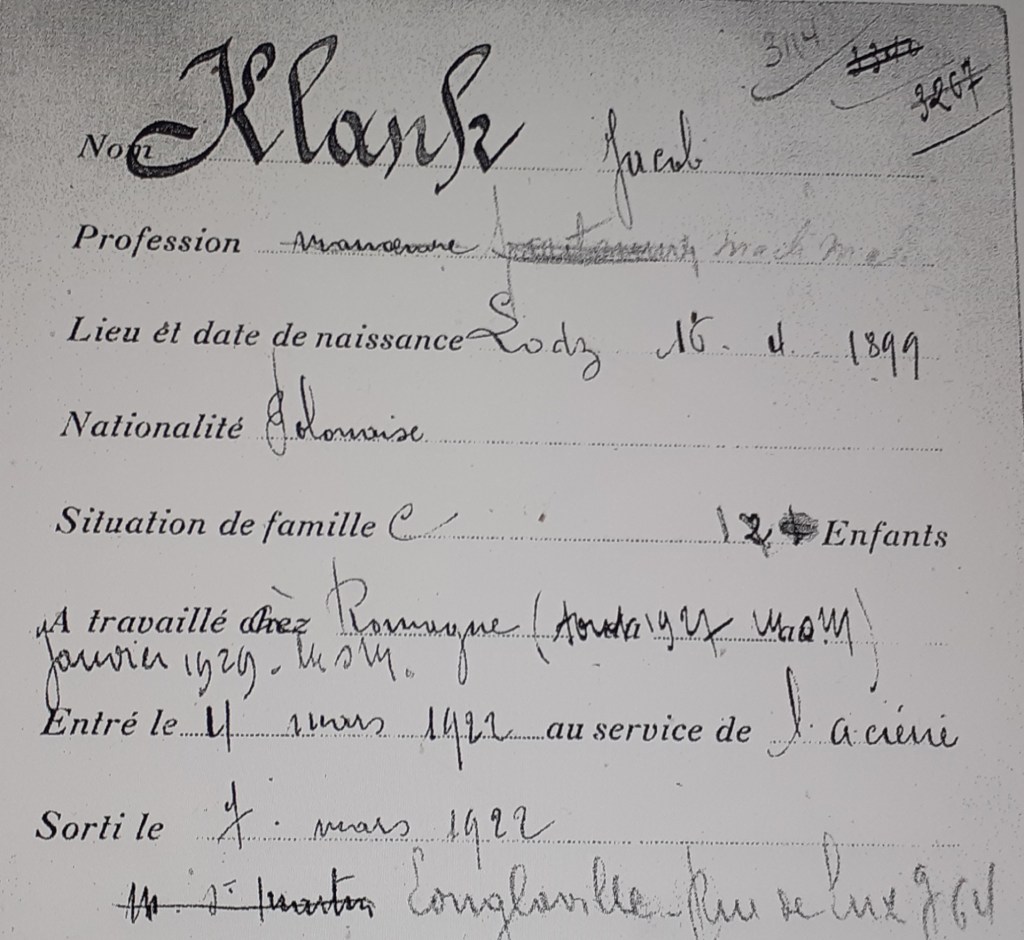 3267
Nom Klank Jacob
Profession manoeuvre
Lieu ét date de naissance Lodz 15. 4. 1899
Nationalité Polonaise
Situation de famille C 2 Enfants
A travaillé chez Romagne ( 1927
Janvier 1929.
Entré le 4 mars 1922 au service de l'aciérie
Sorti le 7. mars 1922
Mt St Martin Longlaville Rue de Lux 64